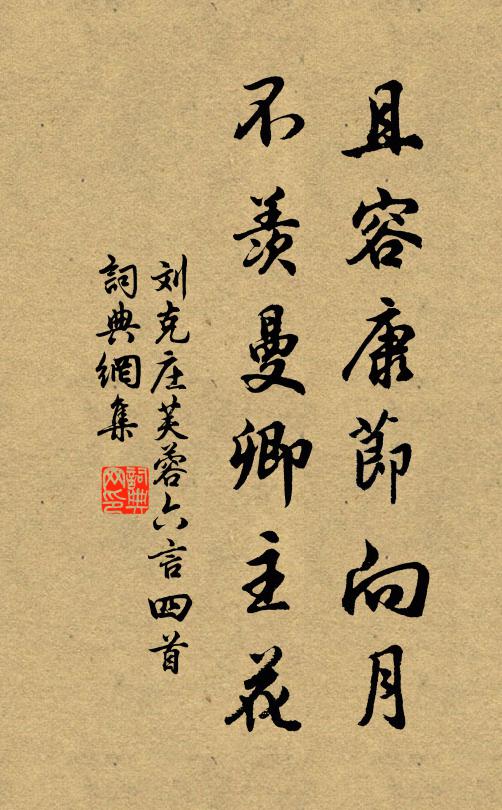 且容康節向月
不羨曼卿主花
刘克庄芙蓉六言四首
詞典網集
詞典網印